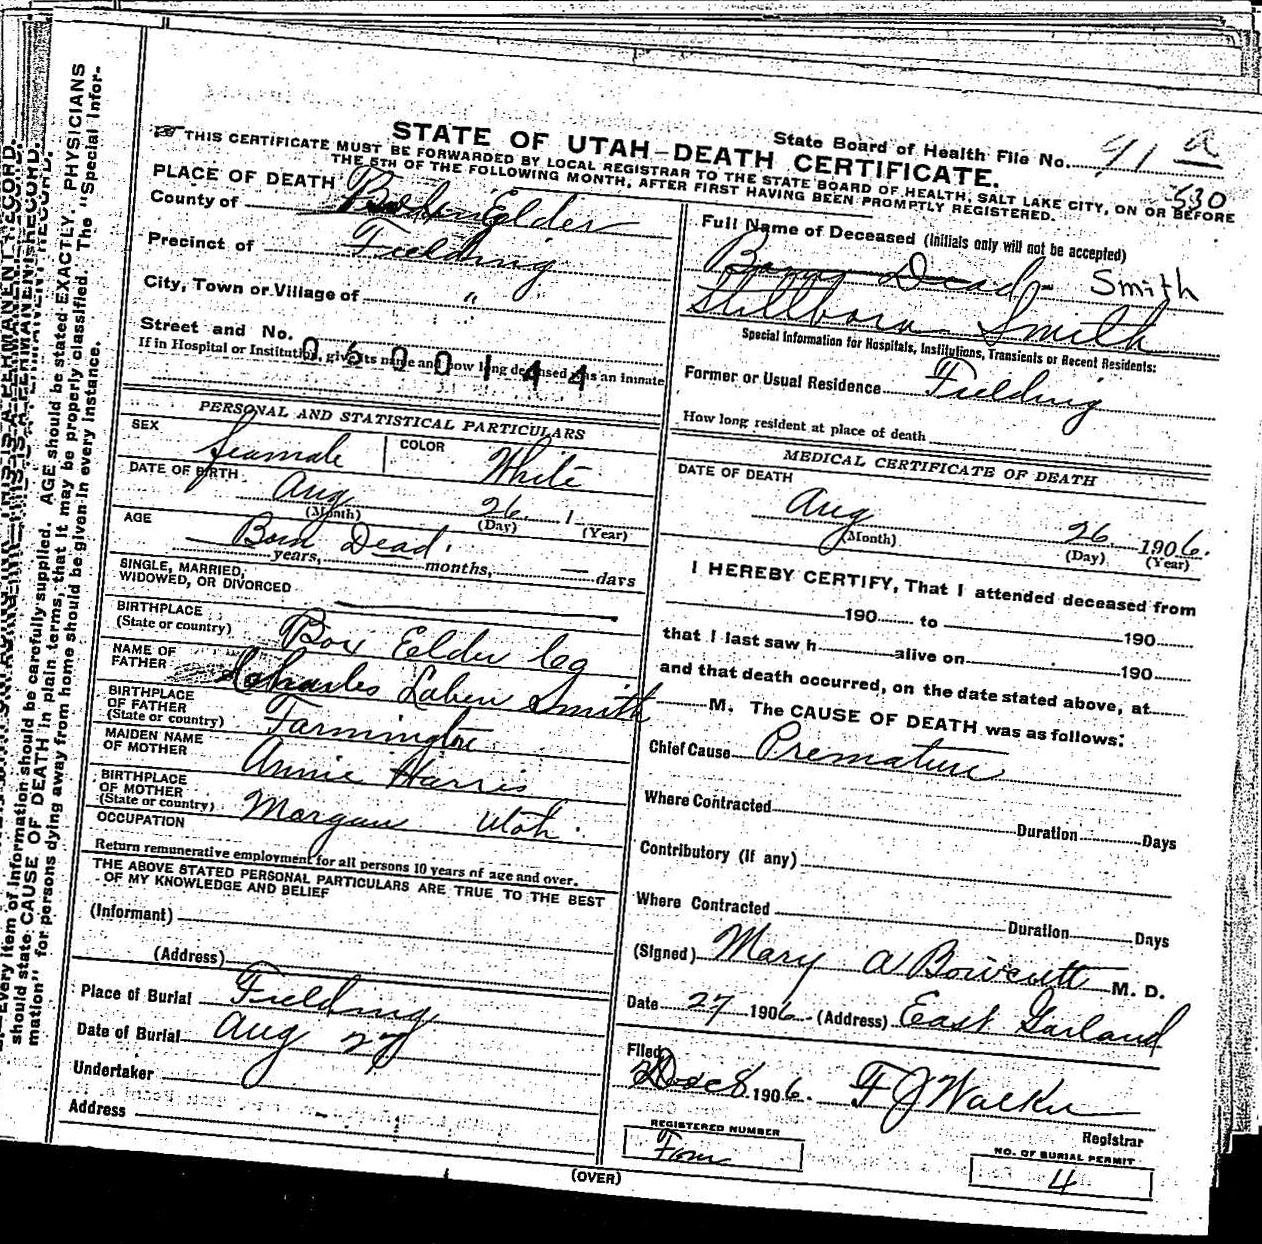 STATE OF UTAH—DEATH CERTIFICATE.
State Board of Health File No. 91 a
530
THIS CERTIFICATE MUST BE FORWARDED BY LOCAL REGISTRAR TO THE STATE BOARD OF HEALTH, SALT LAKE CITY, ON OR BEFORE
THE 5TH OF THE FOLLOWING MONTH, AFTER FIRST HAVING BEEN PROMPTLY REGISTERED.
PLACE OF DEATH
County of Box Elder
Precinct of Fielding
City, Town or Village of "
Street and No.
If in Hospital or Institution, give its name and how long deceased was an inmate
0600144
PERSONAL AND STATISTICAL PARTICULARS
SEX feamale COLOR White
DATE OF BIRTH Aug 26 1
(Month) (Day) (Year)
AGE Born Dead
years, months, — days
SINGLE, MARRIED,
WIDOWED, OR DIVORCED
BIRTHPLACE
(State or country) Box Elder Co
NAME OF
FATHER Charles Laben Smith
BIRTHPLACE
OF FATHER
(State or country) Farmington
MAIDEN NAME
OF MOTHER Annie Harris
BIRTHPLACE
OF MOTHER
(State or country) Morgan Utah.
OCCUPATION
Return remunerative employment for all persons 10 years of age and over.
THE ABOVE STATED PERSONAL PARTICULARS ARE TRUE TO THE BEST
OF MY KNOWLEDGE AND BELIEF
(Informant)
(Address)
Place of Burial Fielding
Date of Burial Aug 27
Undertaker
Address
Full Name of Deceased (Initials only will not be accepted)
Born Dead- Smith
Stillborn Smith
Special Information for Hospitals, Institutions, Transients or Recent Residents:
Former or Usual Residence Fielding
How long resident at place of death
MEDICAL CERTIFICATE OF DEATH
DATE OF DEATH
Aug 26 1906.
(Month) (Day) (Year)
I HEREBY CERTIFY, That I attended deceased from
190 to 190
that I last saw h alive on 190
and that death occurred, on the date stated above, at
M. The CAUSE OF DEATH was as follows:
Chief Cause Premature
Where Contracted
Duration Days
Contributory (if any)
Where Contracted
Duration Days
(Signed) Mary A Bowcutt M. D.
Date 27 1906. (Address) East Garland
Filed
Dec 8 1906. F J Walker
Registrar
REGISTERED NUMBER
Four
NO. OF BURIAL PERMIT
4
(OVER)
Every item of information should be carefully supplied. AGE should be stated EXACTLY. PHYSICIANS
should state CAUSE OF DEATH in plain terms, that it may be properly classified. The "Special Infor-
mation" for persons dying away from home should be given in every instance.